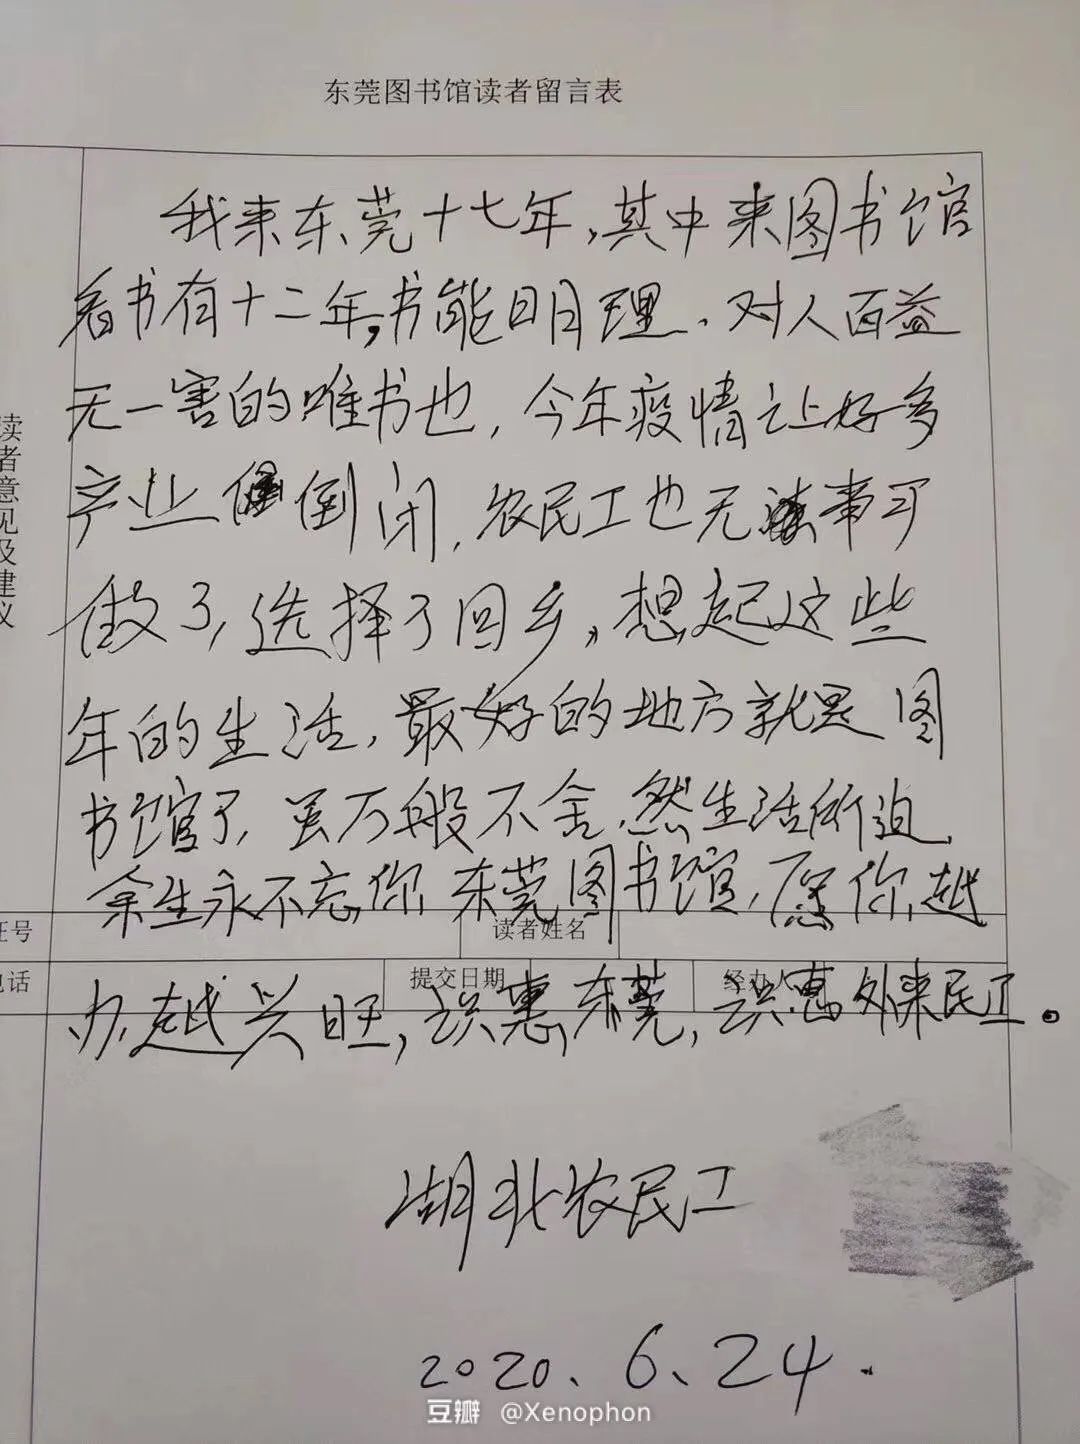 东莞图书馆读者留言表
读者意见及建议
我来东莞十七年,其中来图书馆
看书有十二年,书能明理、对人百益
无一害的唯书也,今年疫情让好多
产业倒闭,农民工也无事可
做了,选择了回乡,想起这些
年的生活,最好的地方就是图
书馆了,虽万般不舍,然生活所迫,
余生永不忘你,东莞图书馆,愿你越
证号
读者姓名
电话
提交日期
经办人
办越兴旺,识惠东莞,识惠外来民工。
湖北农民工
2020、6、24.
豆瓣 @Xenophon